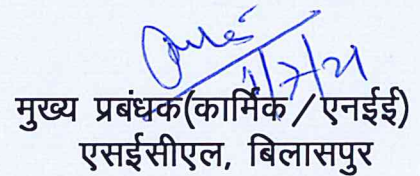 1/7/21
मुख्य प्रबंधक(कार्मिक/एनईई)
एसईसीएल, बिलासपुर